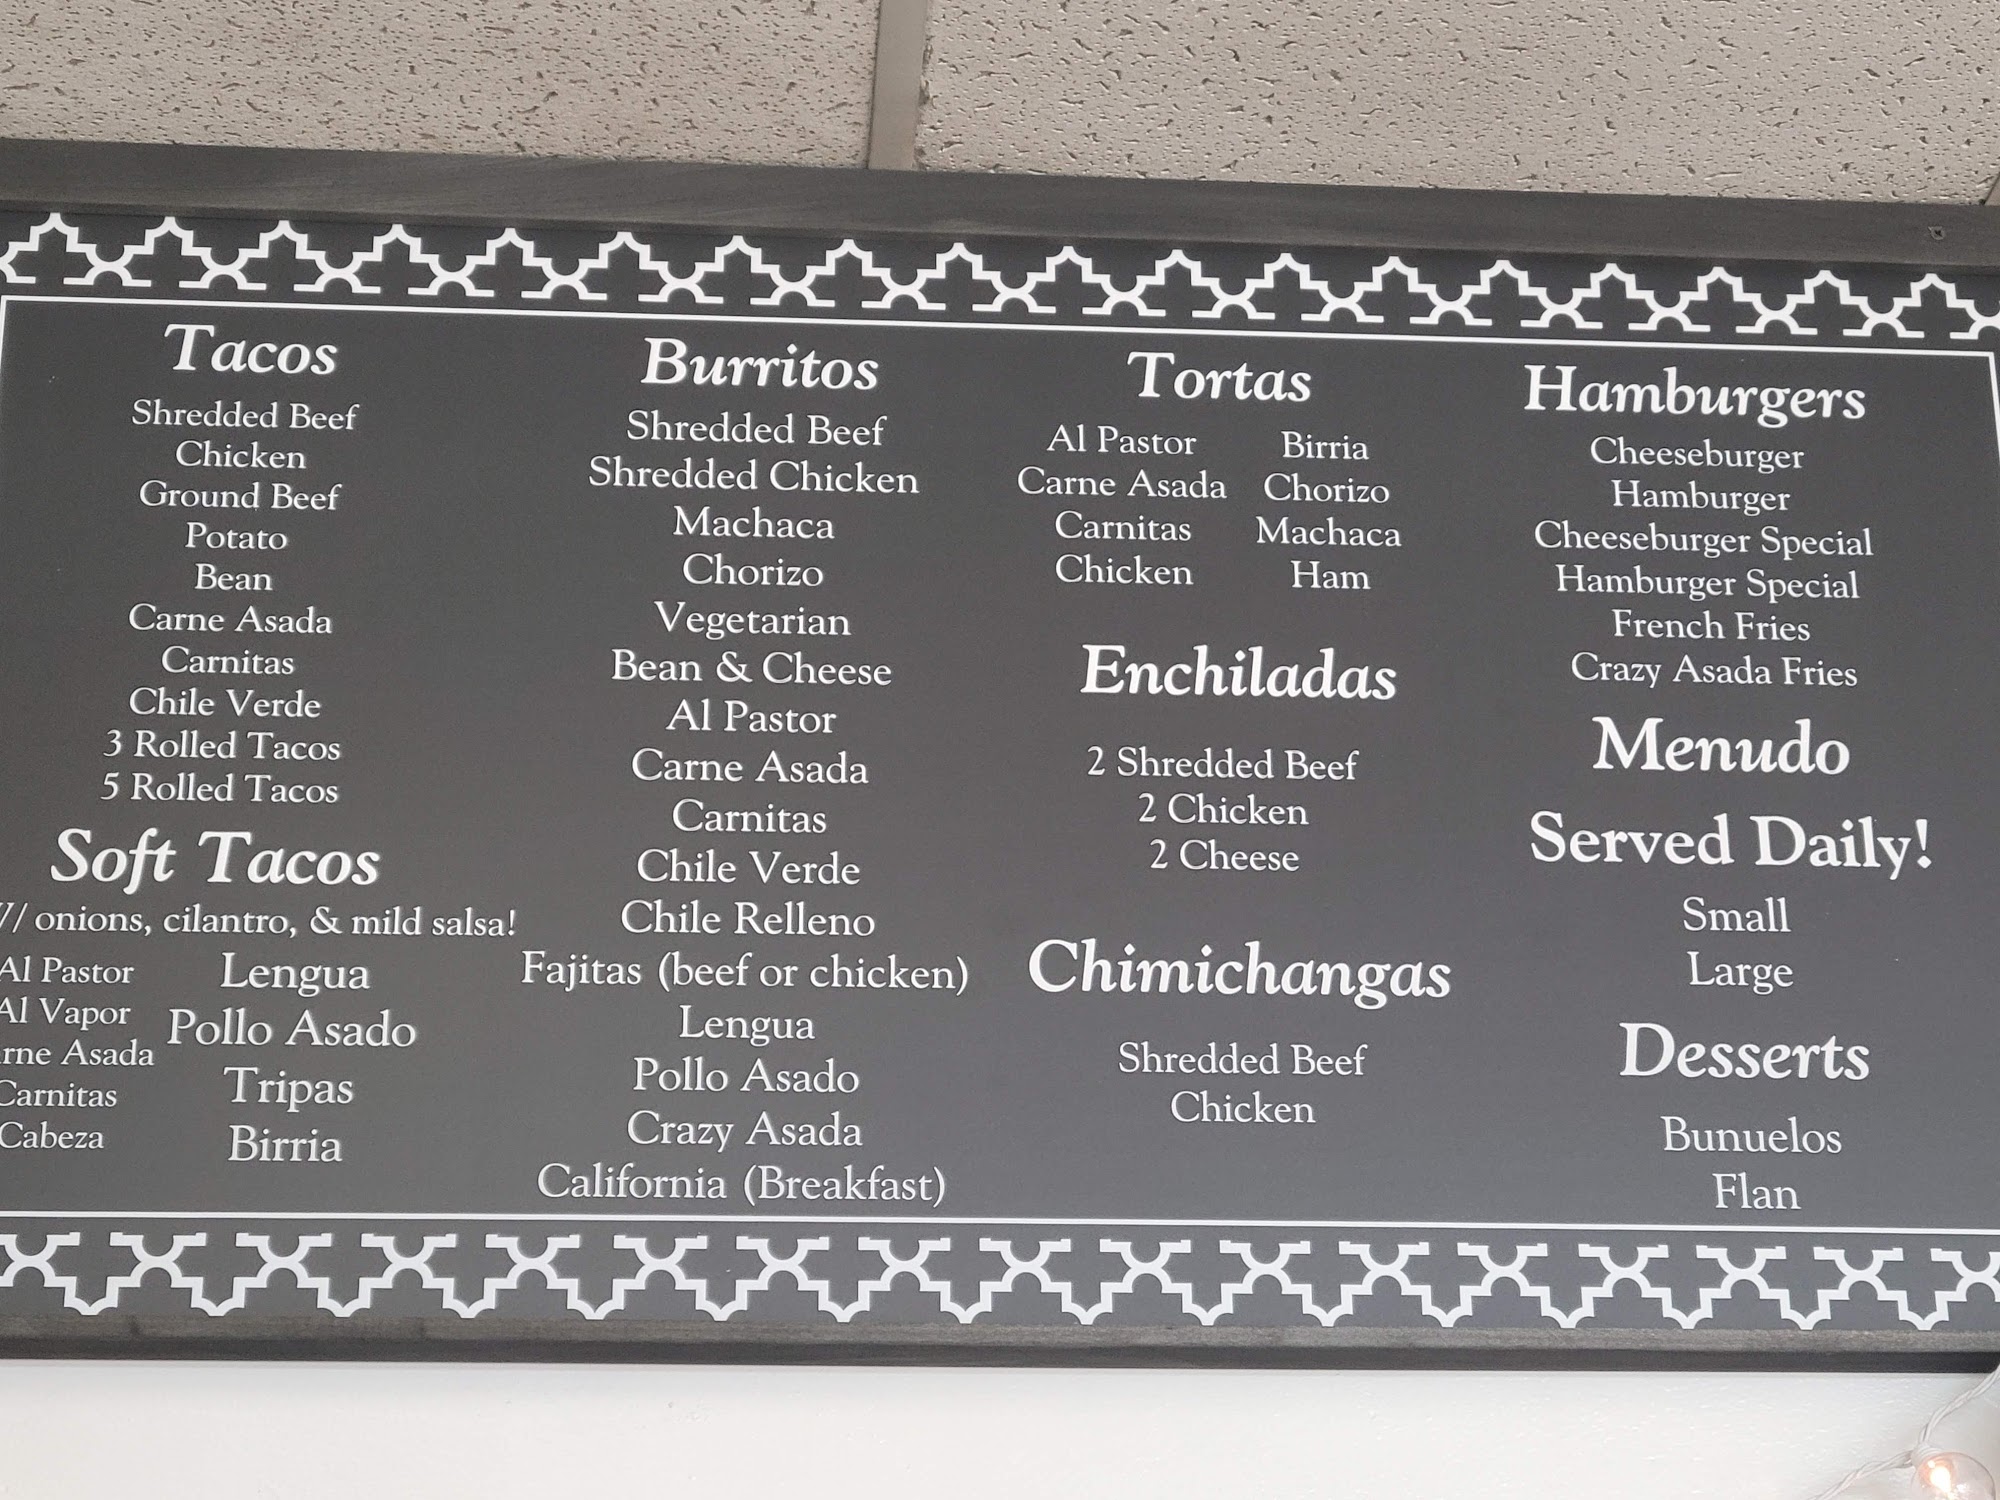 Tacos
Shredded Beef
Chicken
Ground Beef
Potato
Bean
Carne Asada
Carnitas
Chile Verde
3 Rolled Tacos
5 Rolled Tacos
Soft Tacos
/ onions, cilantro, & mild salsa!
Al Pastor
Al Vapor
rne Asada
Carnitas
Cabeza
Lengua
Pollo Asado
Tripas
Birria
Burritos
Shredded Beef
Shredded Chicken
Machaca
Chorizo
Vegetarian
Bean & Cheese
Al Pastor
Carne Asada
Carnitas
Chile Verde
Chile Relleno
Fajitas (beef or chicken)
Lengua
Pollo Asado
Crazy Asada
California (Breakfast)
Tortas
Al Pastor
Carne Asada
Carnitas
Chicken
Birria
Chorizo
Machaca
Ham
Enchiladas
2 Shredded Beef
2 Chicken
2 Cheese
Chimichangas
Shredded Beef
Chicken
Hamburgers
Cheeseburger
Hamburger
Cheeseburger Special
Hamburger Special
French Fries
Crazy Asada Fries
Menudo
Served Daily!
Small
Large
Desserts
Bunuelos
Flan